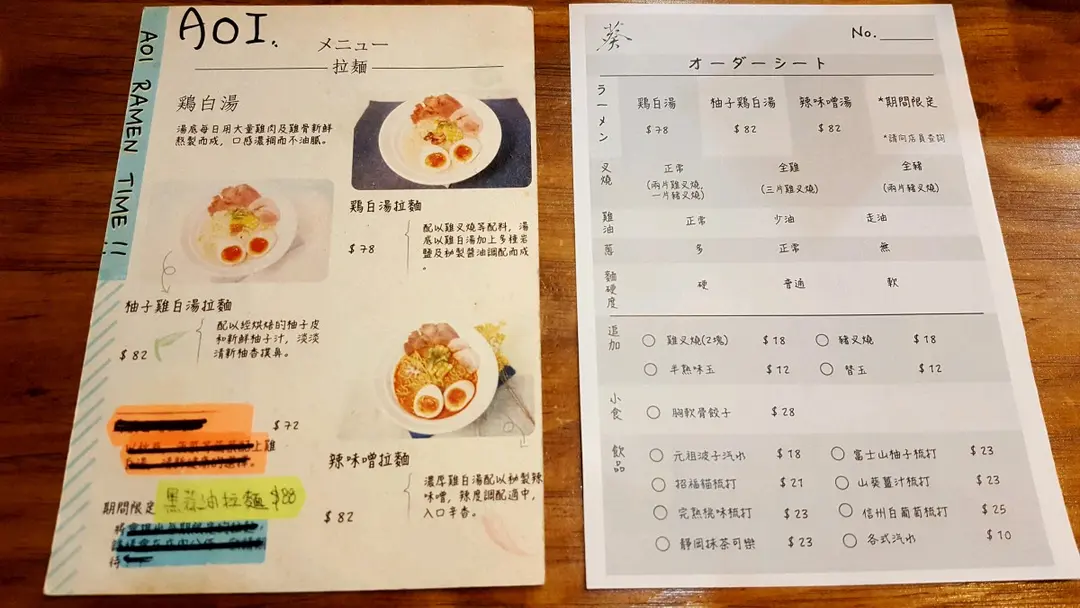 AOI.
AOI RAMEN TIME!!
メニュー
拉麵
鶏白湯
湯底每日用大量雞肉及雞骨新鮮
熬製而成，口感濃稠而不油膩。
鶏白湯拉麵
$78
配以雞叉燒等配料，湯
底以雞白湯加上多種岩
鹽及秘製醬油調配而成
。
柚子雞白湯拉麵
$82
配以經烘焙的柚子皮
和新鮮柚子汁，淡淡
清新柚香撲鼻。
$72
上雞
期間限定 黑蒜油拉麵 $88
待
辣味噌拉麵
$82
濃厚雞白湯配以秘製辣
味噌，辣度調配適中，
入口辛香。
葵
No.
オーダーシート
ラーメン
鶏白湯 柚子鶏白湯 辣味噌湯 *期間限定
$78 $82 $82
*請向店員查詢
叉燒
正常 全雞 全豬
(兩片雞叉燒, (三片雞叉燒) (兩片豬叉燒)
一片豬叉燒)
雞油 正常 少油 走油
蔥 多 正常 無
麵硬度 硬 普通 軟
追加
雞叉燒(2塊) $18 豬叉燒 $18
半熟味玉 $12 替玉 $12
小食
胸軟骨餃子 $28
飲品
元祖波子汽水 $18 富士山柚子梳打 $23
招福貓梳打 $21 山葵薑汁梳打 $23
完熟桃味梳打 $23 信州白葡萄梳打 $25
靜岡抹茶可樂 $23 各式汽水 $10